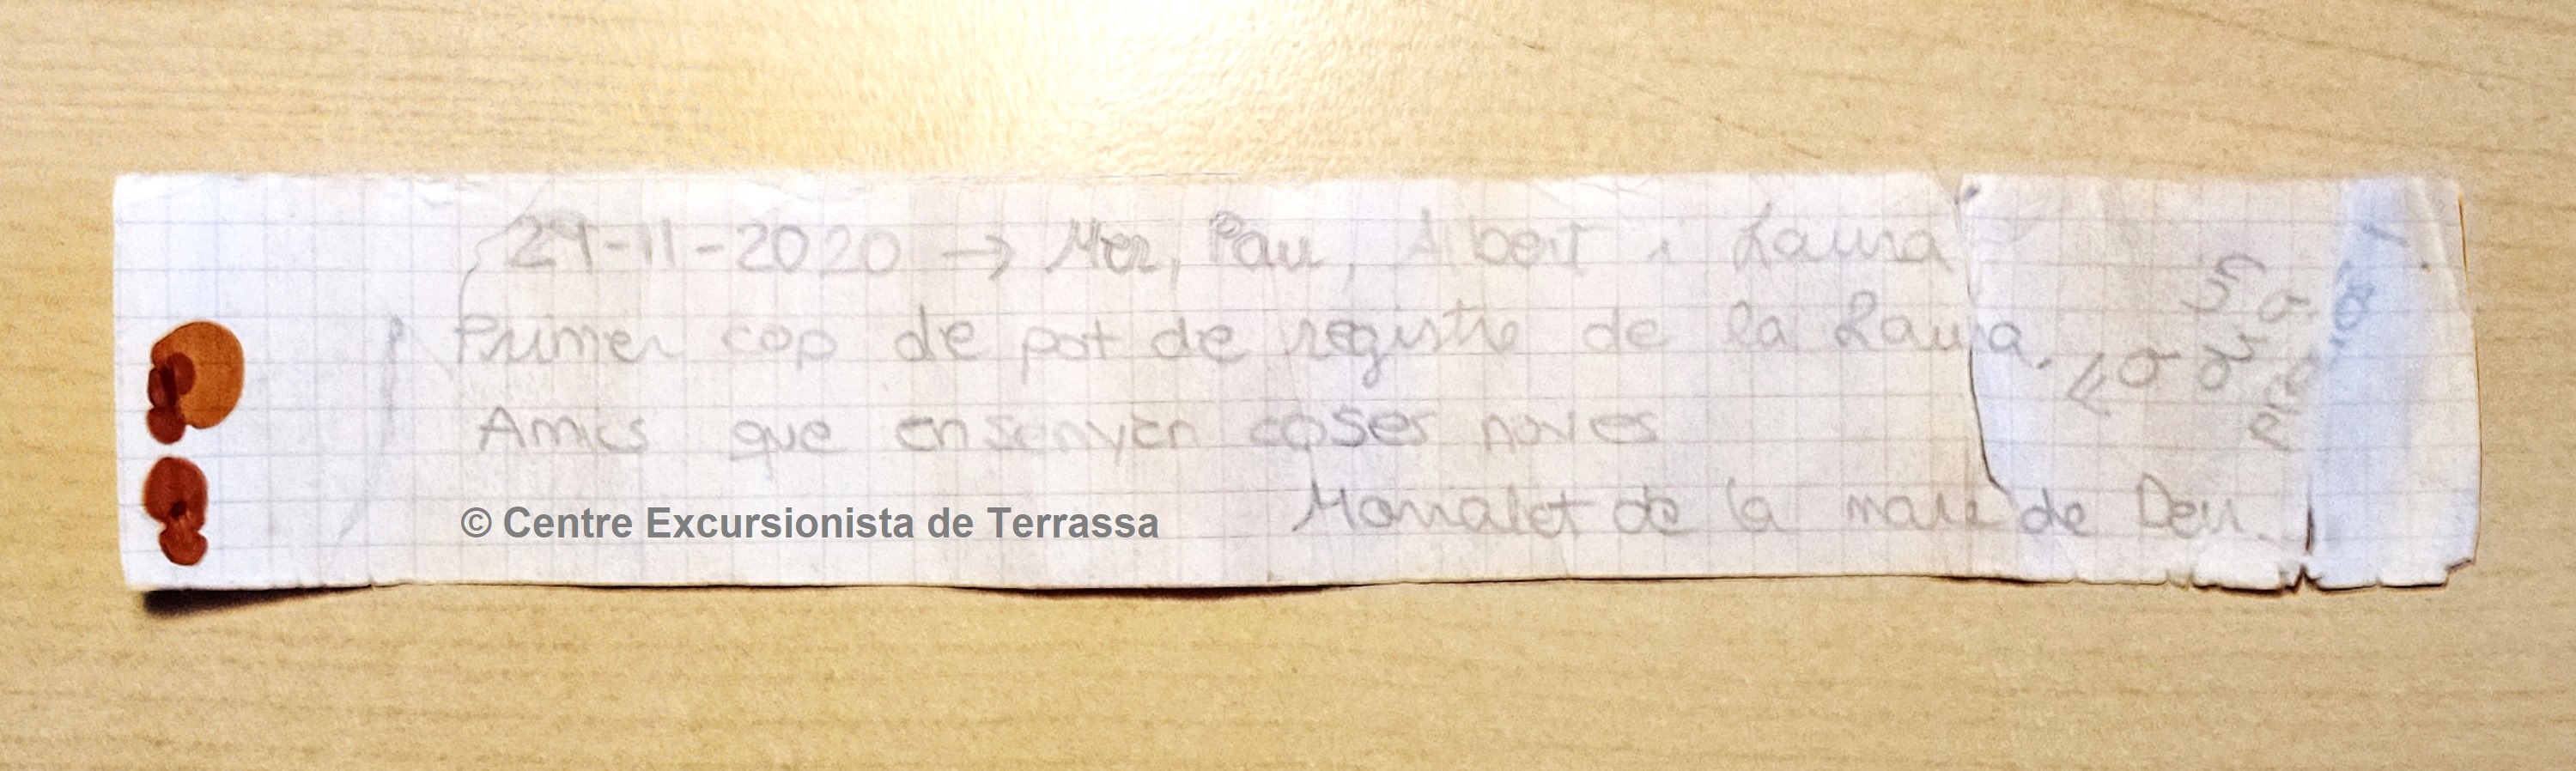 29-11-2020 → Mer, Pau, Albert i Laura
Primer cop de pot de registre de la Laura.
Amics que ensenyen coses noves
Morralet de la mare de Deu.
© Centre Excursionista de Terrassa